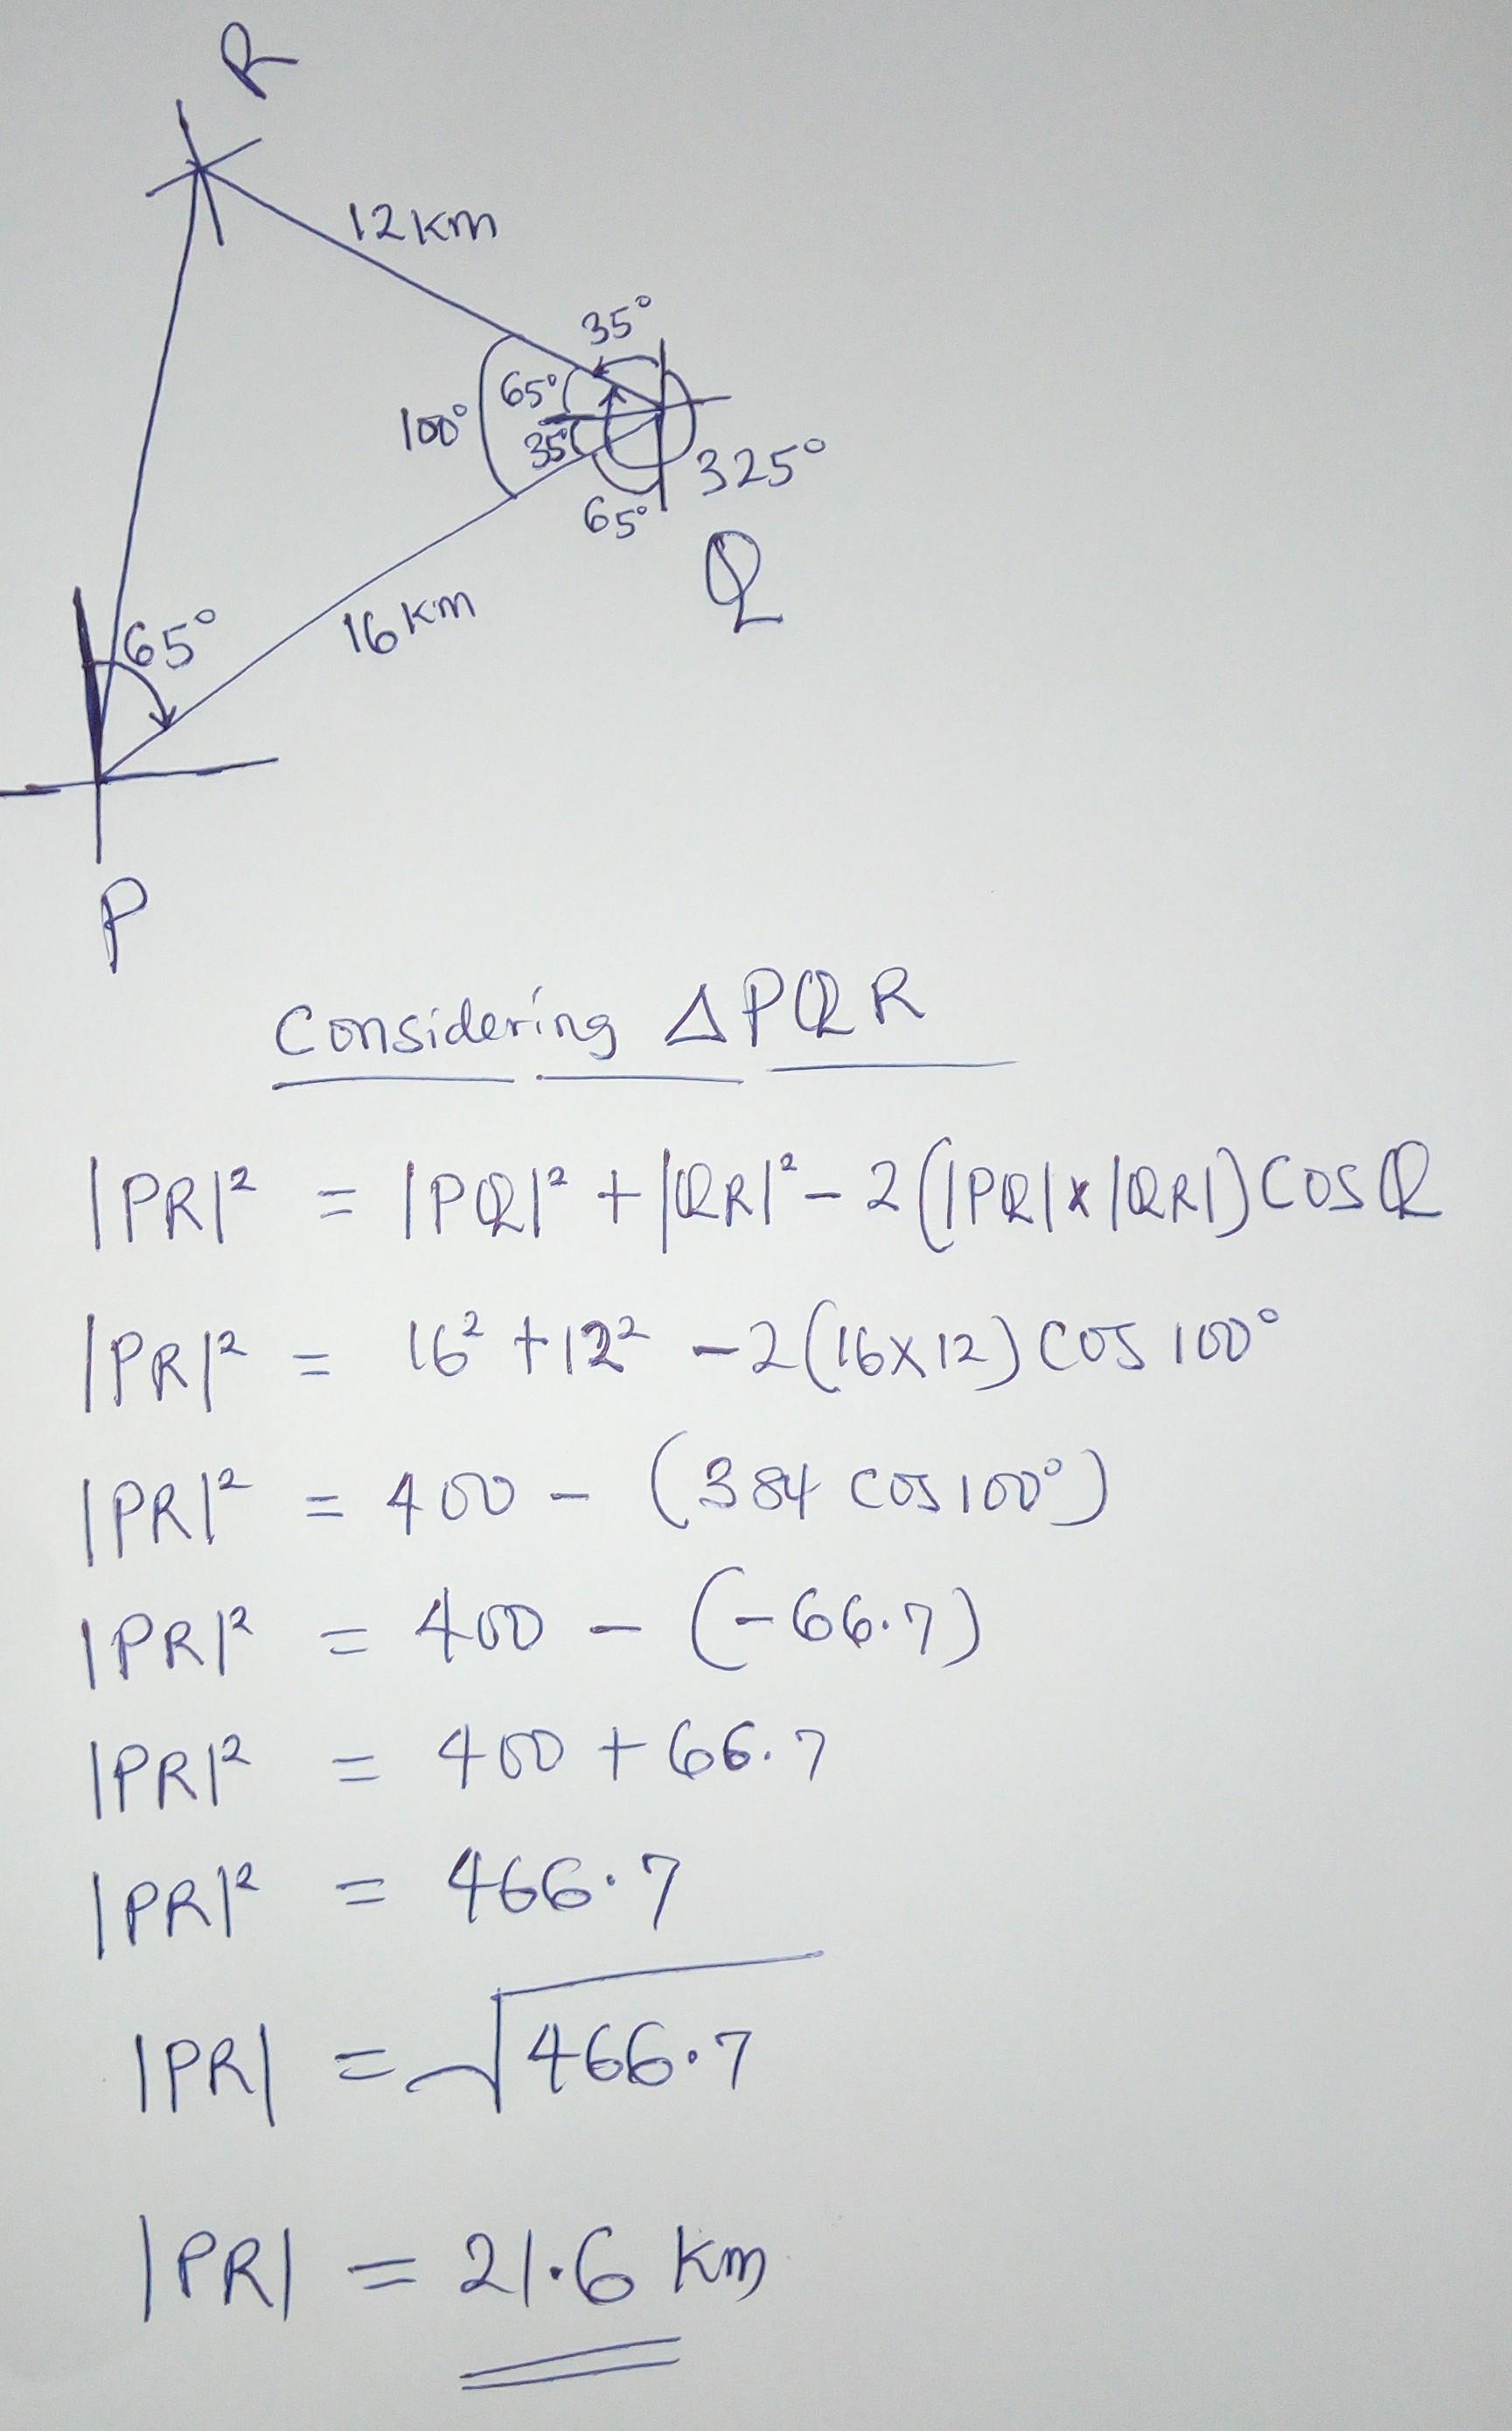 R
12km
35°
65°
100°
35°
325°
65°
Q
16km
65°
P
Considering △PQR
|PR|² = |PQ|² + |QR|² - 2(|PQ|x|QR|) COS Q
|PR|² = 16² + 12² - 2(16x12) COS 100°
|PR|² = 400 - (384 COS 100°)
|PR|² = 400 - (-66.7)
|PR|² = 400 + 66.7
|PR|² = 466.7
|PR| = √466.7
|PR| = 21.6 km